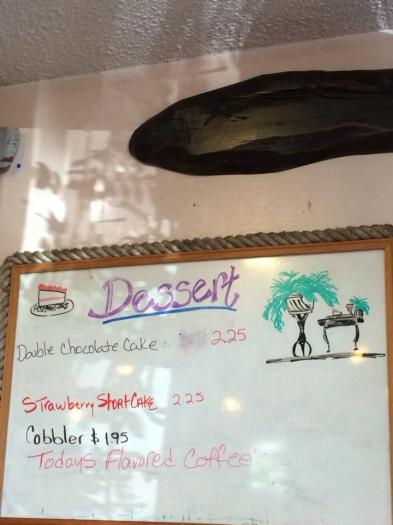 Dessert
Double Chocolate Cake 2.25
Strawberry ShortCAKE 2 2 5
Cobbler $ 1.95
Todays Flavored Coffee